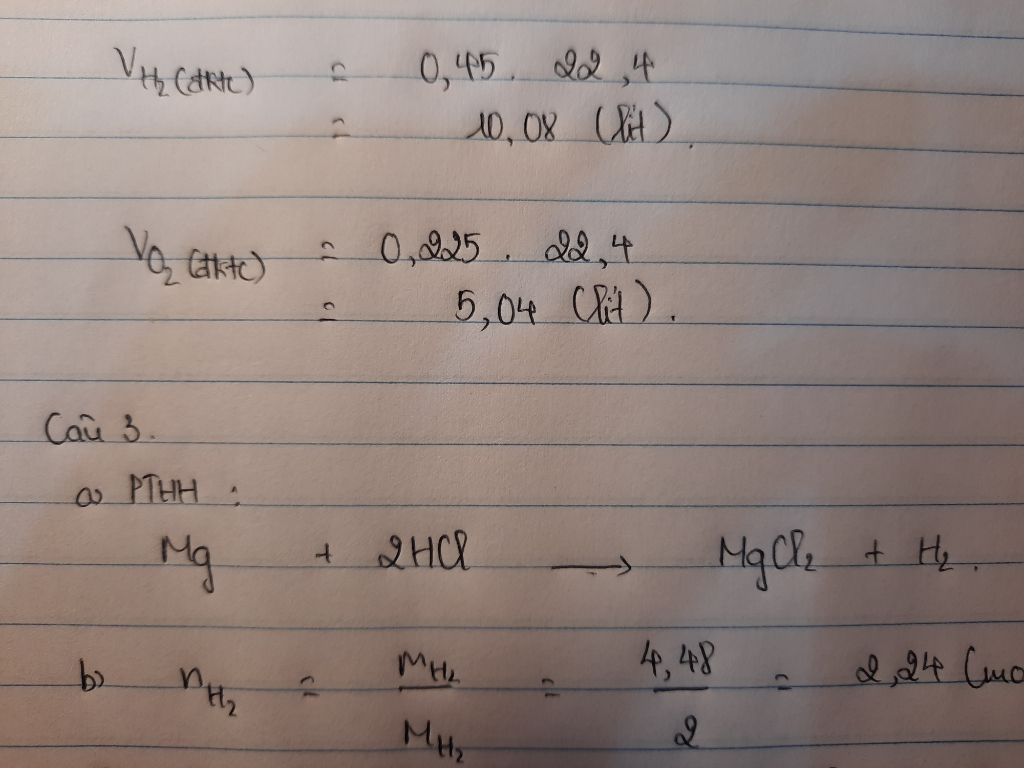 V H₂ (đktc) = 0,45 . 22,4
= 10,08 (lít).
V O₂ (đktc) = 0,225 . 22,4
= 5,04 (lít).
Câu 3.
a) PTHH :
Mg + 2HCl → MgCl₂ + H₂.
b) n H₂ = m H₂ / M H₂ = 4,48 / 2 = 2,24 (mo